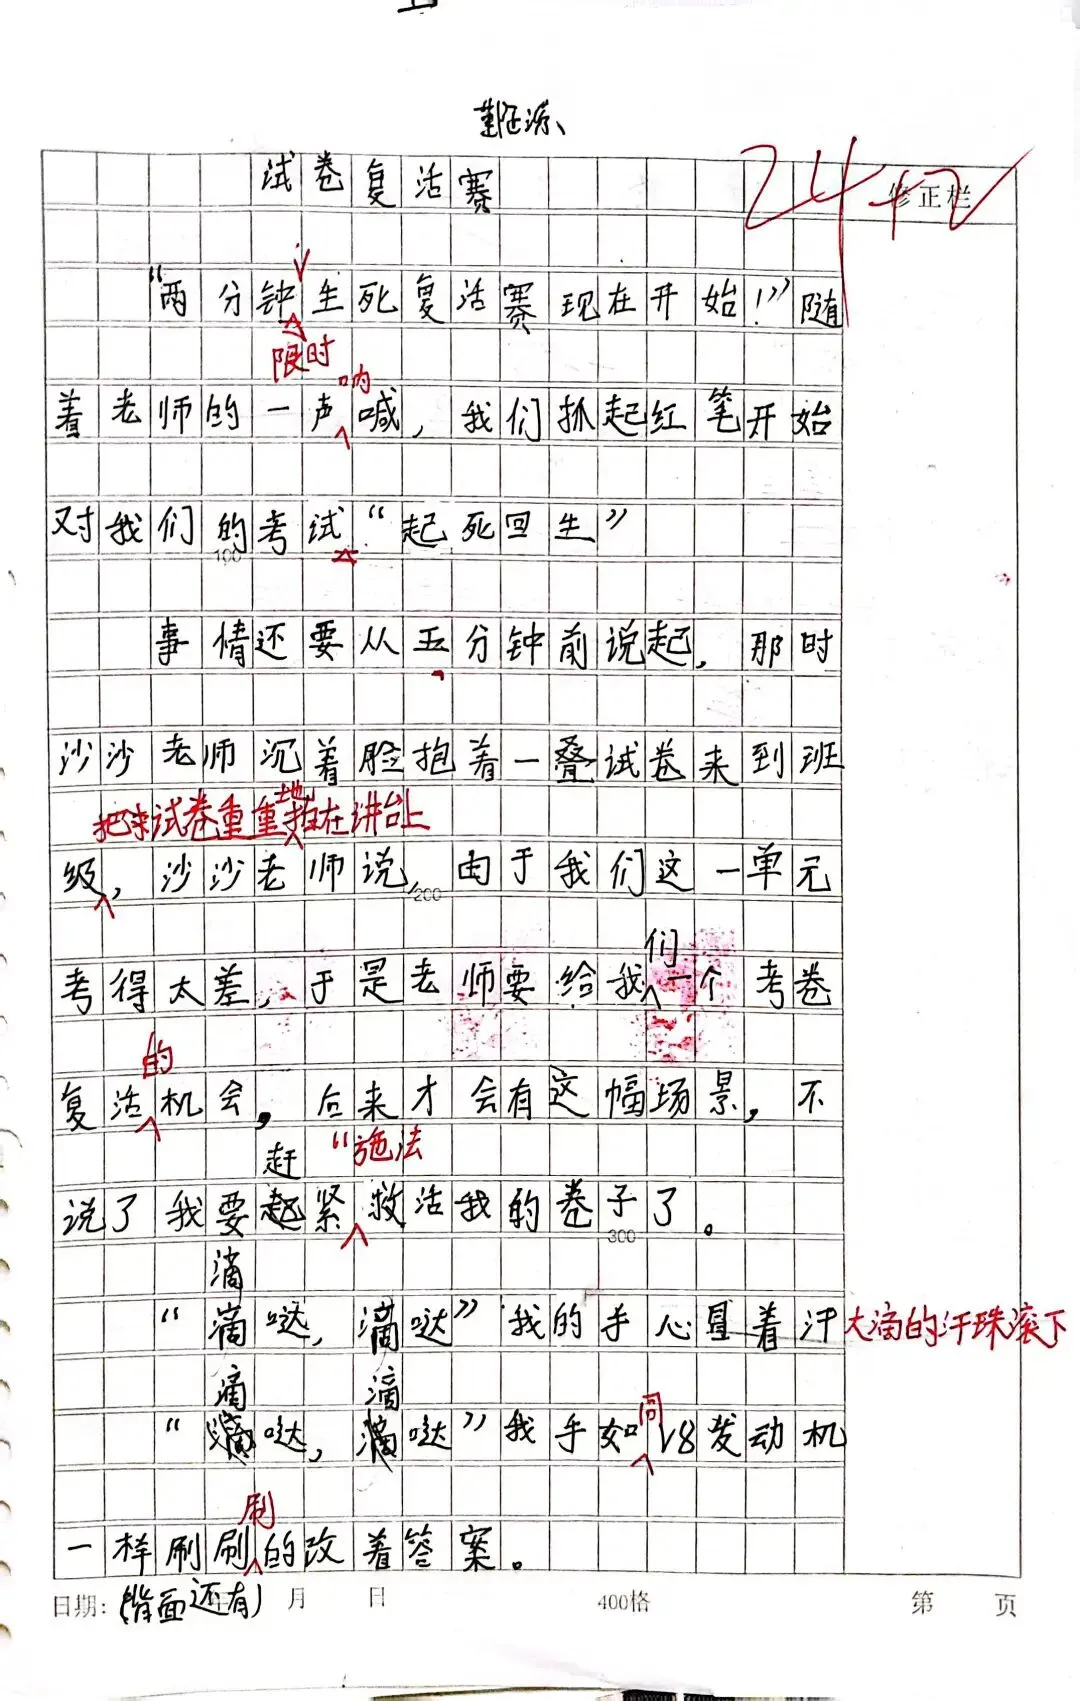 试卷复活赛
24+2
修正栏
“两分钟生死复活赛现在开始！”随
限时
呐
着老师的一声喊，我们抓起红笔开始
对我们的考试“起死回生”
100
事情还要从五分钟前说起，那时
沙沙老师沉着脸抱着一叠试卷来到班
把试卷重重地拍在讲台上
级，沙沙老师说，由于我们这一单元
200
们
考得太差，于是老师要给我一个考卷
的
复活机会，后来才会有这幅场景，不
赶 “施法
说了我要起紧救活我的卷子了。
300
滴
“滴哒，滴哒”我的手心冒着汗 大滴的汗珠滚下
滴 滴 同
“滴哒，滴哒”我手如V8发动机
刷
一样刷刷的改着答案。
日期：(背面还有) 月 日 400格 第 页